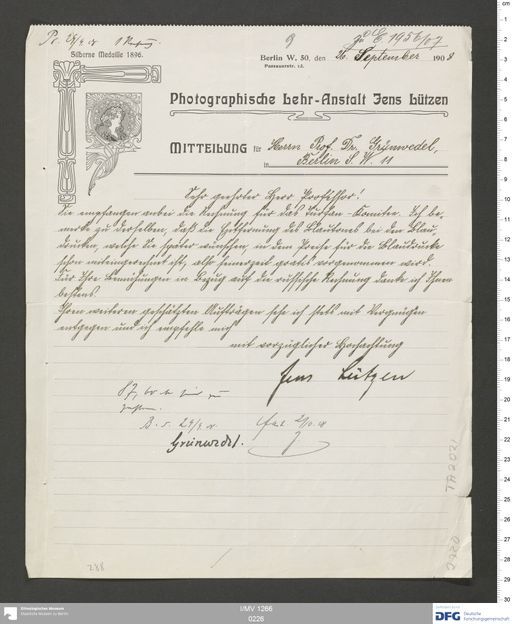 Pr. 29/9 08 1 Rechnung
9
zu E 1956/07
Silberne Medaille 1896.
Berlin W. 50, den 26. September 1908
Passauerstr. 13.
Photographische Lehr-Anstalt Jens Lützen
MITTEILUNG für Herrn Prof. Dr. Grünwedel,
in Berlin S. W. 11
Sehr geehrter Herr Professor!
Sie empfangen anbei die Rechnung für das Turfan-Komitee. Ich be-
merke zu derselben, daß die Entfernung des Blautones bei den Blau-
drucken, welche Sie später wünschen, in dem Preise für die Blaudrucke
schon miteingerechnet ist, also seinerzeit gratis vorgenommen wird.
Für Ihre Bemühungen in Bezug auf die russische Rechnung danke ich Ihnen
bestens.
Ihren weiteren geschätzten Aufträgen sehe ich stets mit Vergnügen
entgegen und ich empfehle mich
mit vorzüglicher Hochachtung
Jens Lützen
B. 5. 29/9. 08
Grünwedel.
288
TA 2021
0220
Ethnologisches Museum
Staatliche Museen zu Berlin
I/MV 1266
0226
DFG Deutsche
Forschungsgemeinschaft